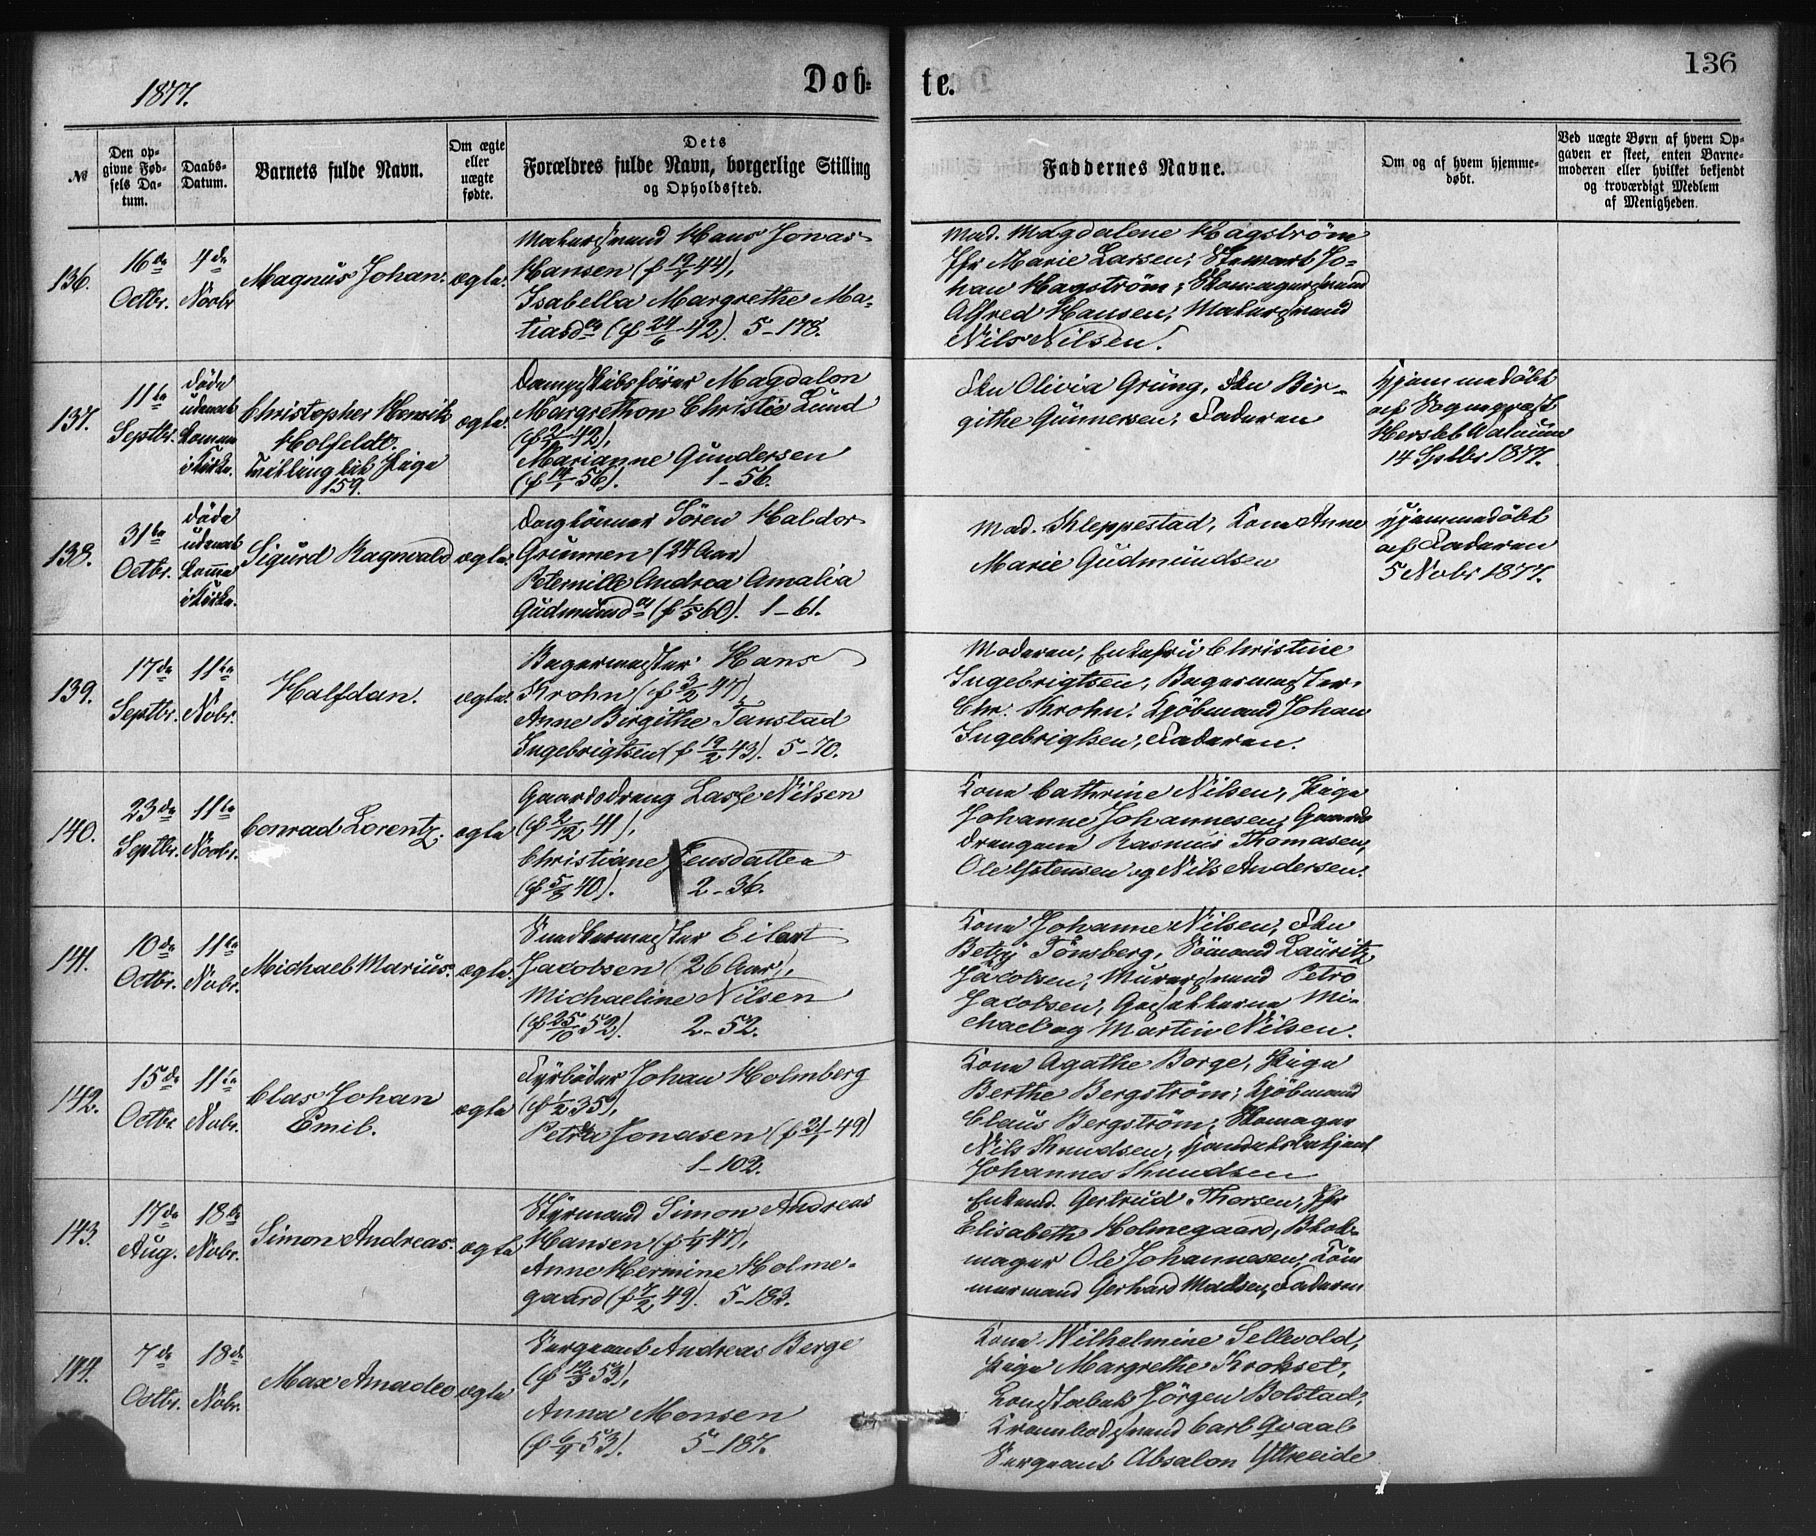 1877.
Døb-
te.
136
№
Den op-
givne Fød-
sels Da-
tum.
Daabs-
Datum.
Barnets fulde Navn.
Om ægte
eller
uægte
fødte.
Dets
Forældres fulde Navn, borgerlige Stilling
og Opholdssted.
Faddernes Navne.
Om og af hvem hjemme-
døbt.
Ved uægte Børn af hvem Op-
gaven er skeet, enten Barne-
moderen eller hvilket bekjendt
og troværdigt Medlem
af Menigheden.
136.
16de
Octbr.
4de
Novbr
Magnus Johan.
ægte.
Malersvend Hans Jonas
Hansen (f 44),
Isabella Margrethe Ma-
tiasdr (f 24/6 42). 5-178.
Mad. Magdalene Hagström
Jfr Marie Larsen; Stewart Jo-
han Hagström; Skomagersvend
Alfred Hansen; Malersvend
Nils Nilsen.
137.
11te
Septbr.
døde
udenat
komme
i Kirke.
Christopher Henrik
Holfeldt.
Tvilling til Pige
159.
ægte.
Dampskibsfører Magdalon
Margrethon Christie Lund
(f 42),
Marianne Gundersen
(f 14/1 56). 1-56.
Fkn Olivia Grüng, Fkn Bir-
githe Gunnersen; Faderen
Hjemmedøbt
af Sognepræst
Hersleb Walnum
14 Septbr 1877.
138.
31te
Octbr.
døde
udenat
komme
i Kirke.
Sigurd Ragnvald
ægte.
Daglønner Søren Haldor
Grunnen (27 Aar)
Peternille Andrea Amalia
Gudmundsdr (f 1/5 60). 1-61.
Mad. Kleppestad, Kone Anne
Marie Gudmundsen
Hjemmedøbt
af Faderen
5 Novbr 1877.
139.
17de
Septbr.
11te
Nobr.
Halfdan.
ægte.
Bagermester Hans
Krohn (f 3/2 47),
Anne Birgithe Tanstad
Ingebrigtsen (f 19/2 43). 5-70.
Moderen, Enkefru Christine
Ingebrigtsen, Bagermester
Chr. Krohn. Kjøbmand Johan
Ingebrigtsen, Faderen.
140.
23de
Septbr.
11te
Novbr.
Conrad Lorentz.
ægte
Gaardsdreng Lasse Nilsen
(f 2/12 41),
Christiane Jensdatter
(f 5/8 40). 2-36.
Kone Cathrine Nilsen, Pige
Johanne Johannesen, Gaards
drengene Rasmus Thomasen,
Ole Ystensen og Nils Andersen.
141.
10de
Octbr.
11te
Nobr.
Michael Marius.
ægte.
Snedkermester Eilert
Jacobsen (26 Aar),
Michaeline Nilsen
(f 25/10 52). 2-52.
Kone Johanne Nilsen, Fkn
Betzy Tönsberg, Sömand Lauritz
Jacobsen, Murersvend Petro
Jacobsen, Gaselterne Mi-
chael og Martin Nilsen.
142.
15de
Octbr.
11te
Nobr.
Clas Johan
Emil.
ægte
Fyrbøder Johan Holmberg
(f 1/2 35),
Petra Jonasen (f 21/1 49)
1-102.
Kone Agathe Borge, Pige
Berthe Bergström; Kjøbmand
Claus Bergström; Skomager
Nils Knudsen, Handelsbetjent
Johannes Knudsen
143.
17de
Aug.
18de
Nobr.
Simon Andreas.
ægte
Styrmand Simon Andreas
Hansen (f 47),
Anne Hermine Holme-
gaard (f 49). 5-183.
Enkemd. Gertrud Thorsen, Jfr
Elisabeth Holmegaard, Blok-
mager Ole Johannesen, Töm
mermand Gerhard Madsen, Faderen
144.
7de
Octbr.
18de
Nobr.
Max Amadeo
ægte
Sergeant Andreas Berge
(f 53),
Anna Monsen
(f 53). 5-187.
Kone Wilhelmine Sellevold,
Pige Margrethe Krokset,
Konstabel Jörgen Bolstad,
Krambodsvend Carl Graal
Sergeant Absalon Ytreeide